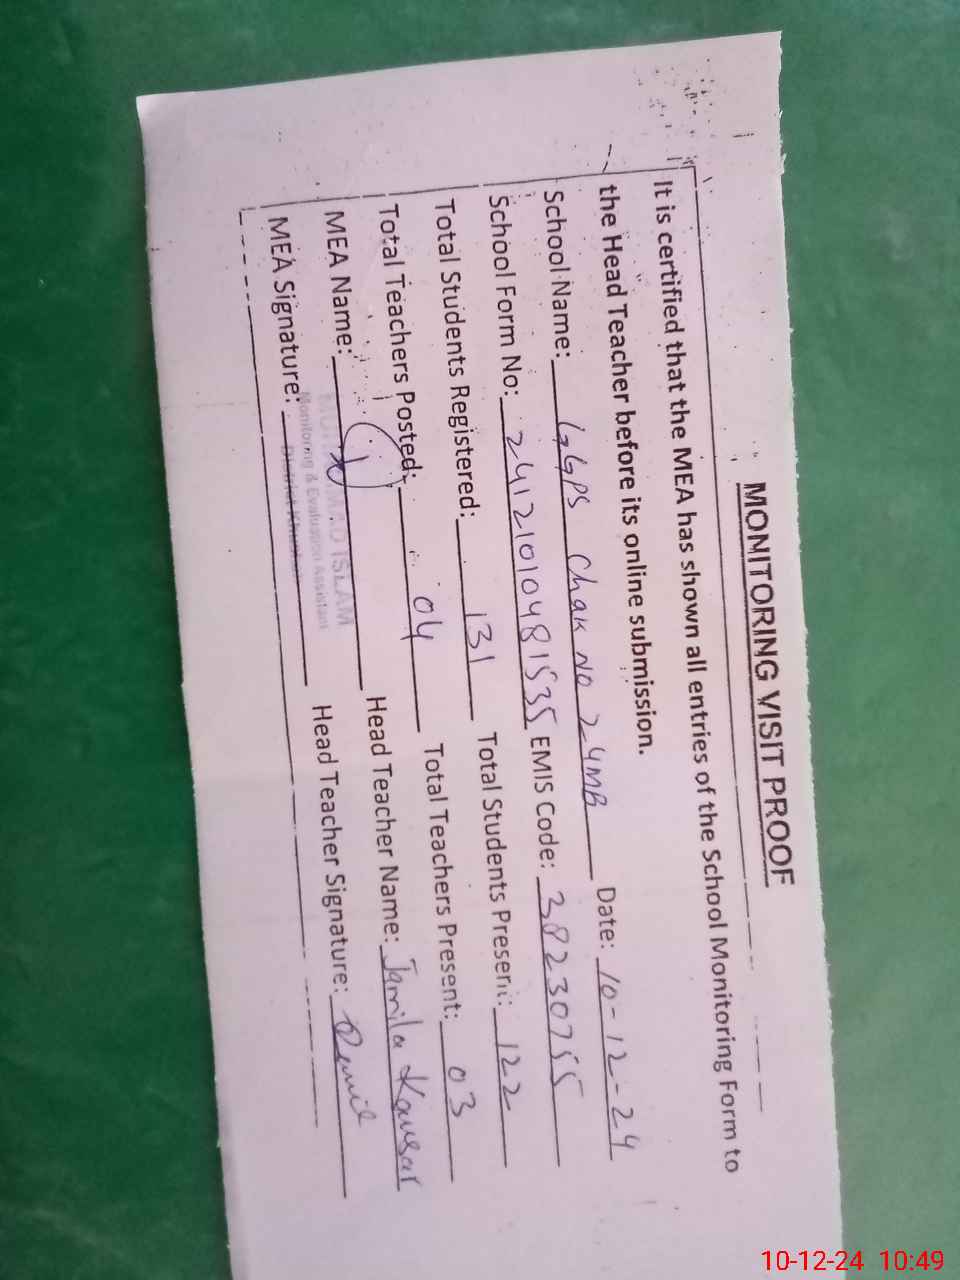 MONITORING VISIT PROOF
It is certified that the MEA has shown all entries of the School Monitoring Form to
the Head Teacher before its online submission.
School Name: GGPS Chak No 24MB Date: 10-12-24
School Form No: 2412101048 1535 EMIS Code: 38230755
Total Students Registered: 131 Total Students Present: 122
Total Teachers Posted: 04 Total Teachers Present: 03
MEA Name: Head Teacher Name: Jamila Kousar
MEA Signature: Head Teacher Signature:
ISLAM
Monitoring & Evaluation Assistant
District
10-12-24 10:49